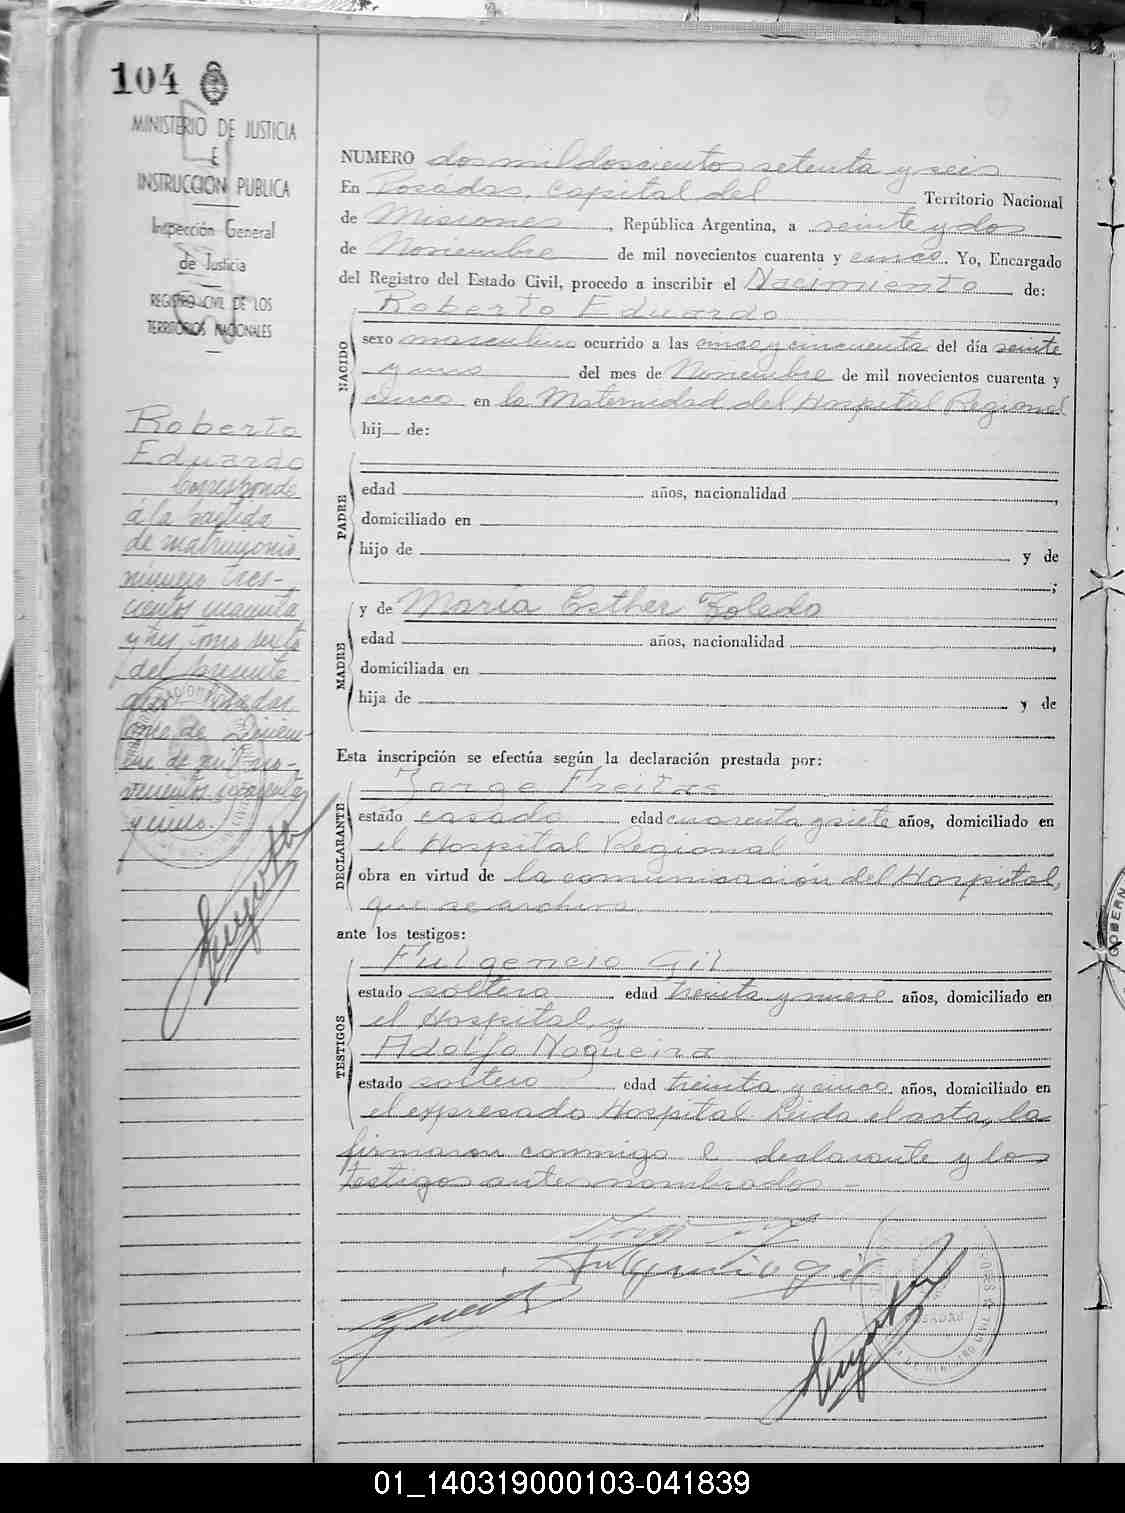 104
MINISTERIO DE JUSTICIA
E
INSTRUCCION PUBLICA
Inspección General
de Justicia
REGISTRO CIVIL DE LOS
TERRITORIOS NACIONALES
Roberto
Eduardo
Corresponde
á la partida
de matrimonio
número tres-
cientos cuarenta
y tres, tomo sexto
del presente
año. Posadas
once de Diciem-
bre de mil no-
vecientos cuarenta
y cinco.
NUMERO dos mil doscientos setenta y seis
En Posadas, capital del Territorio Nacional
de Misiones, República Argentina, a veinte y dos
de Noviembre de mil novecientos cuarenta y cinco. Yo, Encargado
del Registro del Estado Civil, procedo a inscribir el Nacimiento de:
NACIDO
Roberto Eduardo
sexo masculino ocurrido a las cinco y cincuenta del día veinte
y uno del mes de Noviembre de mil novecientos cuarenta y
cinco en la Maternidad del Hospital Regional
hij de:
PADRE
edad años, nacionalidad ,
domiciliado en
hijo de y de
;
MADRE
y de María Esther Toledo
edad años, nacionalidad ,
domiciliada en
hija de y de
Esta inscripción se efectúa según la declaración prestada por:
DECLARANTE
Jorge Freitas
estado casado edad cuarenta y siete años, domiciliado en
el Hospital Regional
obra en virtud de la comunicación del Hospital,
que se archiva
ante los testigos:
TESTIGOS
Fulgencio Gil
estado soltero edad treinta y nueve años, domiciliado en
el Hospital, y
Adolfo Nogueira
estado soltero edad treinta y cinco años, domiciliado en
el expresado Hospital Leida el acta, la
firmaron conmigo el declarante y los
testigos antes nombrados -
Fulgencio Gil
GOBERN
01_140319000103-041839